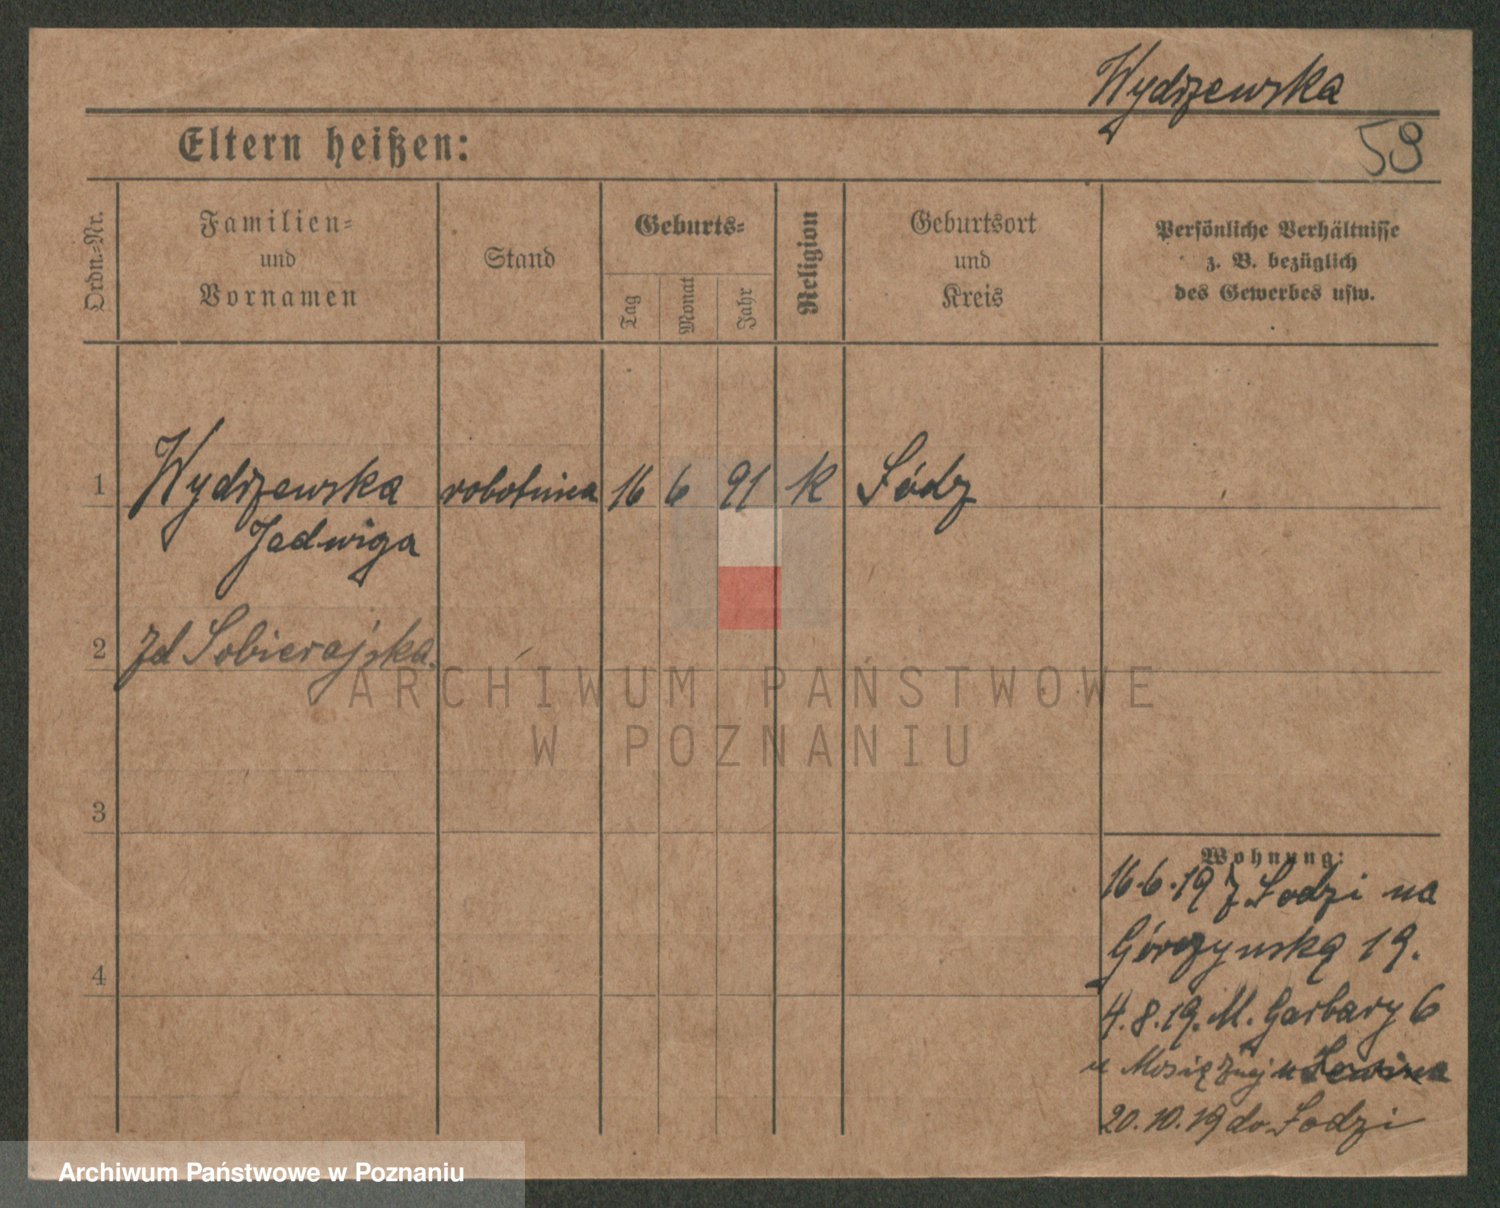 Wydrzewska
59
Eltern heißen:
Ordn.-Nr.
Familien-
und
Vornamen
Stand
Geburts-
Tag
Monat
Jahr
Religion
Geburtsort
und
Kreis
Persönliche Verhältnisse
z. B. bezüglich
des Gewerbes usw.
1 Wydrzewska robotnica 16 6 91 K Łódz
Jadwiga
2 zd Sobierajska.
ARCHIWUM PAŃSTWOWE
W POZNANIU
3
Wohnung:
16.6.19 z Łodzi na
Górczynską 19.
4
4.8.19. M. Garbary 6
u Mosiężnej u
20.10.19 do Łodzi
Archiwum Państwowe w Poznaniu